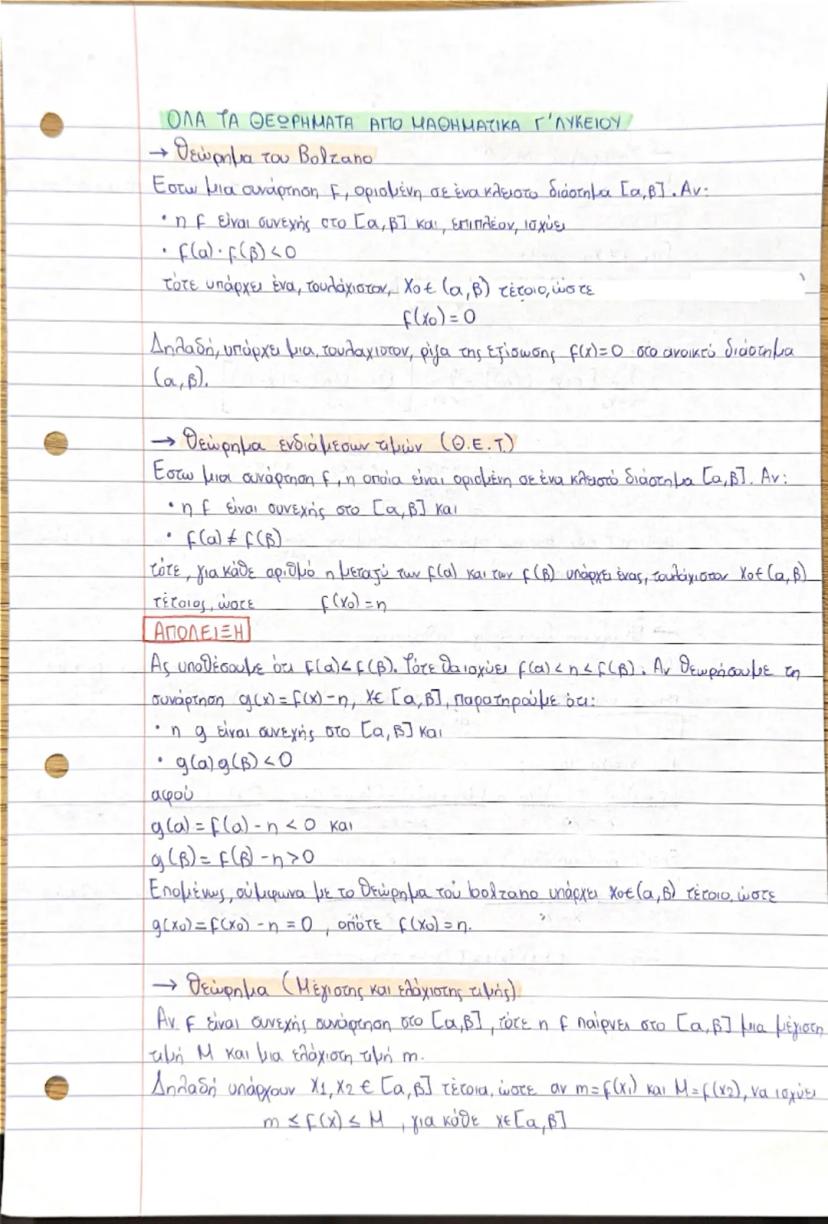 ΟΛΑ ΤΑ ΘΕΩΡΗΜΑΤΑ ΑΠΟ ΜΑΘΗΜΑΤΙΚΑ Γ' ΛΥΚΕΙΟΥ
→ Θεώρημα του Bolzano
Εστω μια συνάρτηση f, ορισμένη σε ένα κλειστο διάστημα [α,β]. Αν:
• η f είναι συνεχής στο [α,β] και, επιπλέον, ισχύει
• f(α)·f(β)<0
τότε υπάρχει ένα, τουλάχιστον, x0∈(α,β) τέτοιο, ώστε
f(x0)=0
Δηλαδή, υπάρχει μια, τουλαχιστον, ρίζα της εξίσωσης f(x)=0 στο ανοικτό διάστημα
(α,β).
→ Θεώρημα ενδιάμεσων τιμών (Θ.Ε.Τ)
Εστω μια συνάρτηση f, η οποία είναι ορισμένη σε ένα κλειστό διάστημα [α,β]. Αν:
• η f είναι συνεχής στο [α,β] και
• f(α)≠f(β)
τότε, για κάθε αριθμό η μεταξύ των f(α) και των f(β) υπάρχει ένας, τουλάχιστον x0∈(α,β)
τέτοιος, ώστε f(x0)=η
ΑΠΟΔΕΙΞΗ
Ας υποθέσουμε ότι f(α)<f(β). Τότε θα ισχύει f(α)<η≤f(β). Αν θεωρήσουμε τη
συνάρτηση g(x)=f(x)-η, x∈[α,β], παρατηρούμε ότι:
• η g είναι συνεχής στο [α,β] και
• g(α)g(β)<0
αφού
g(α)=f(α)-η<0 και
g(β)=f(β)-η>0
Επομένως, σύμφωνα με το θεώρημα του bolzano υπάρχει x0∈(α,β) τέτοιο, ώστε
g(x0)=f(x0)-η=0, οπότε f(x0)=η.
→ Θεώρημα (Μέγιστης και ελάχιστης τιμής)
Αν f είναι συνεχής συνάρτηση στο [α,β], τότε η f παίρνει στο [α,β] μια μέγιστη
τιμή Μ και μια ελάχιστη τιμή m.
Δηλαδή υπάρχουν x1,x2∈[α,β] τέτοια, ώστε αν m=f(x1) και M=f(x2), να ισχύει
m≤f(x)≤M, για κάθε x∈[α,β]